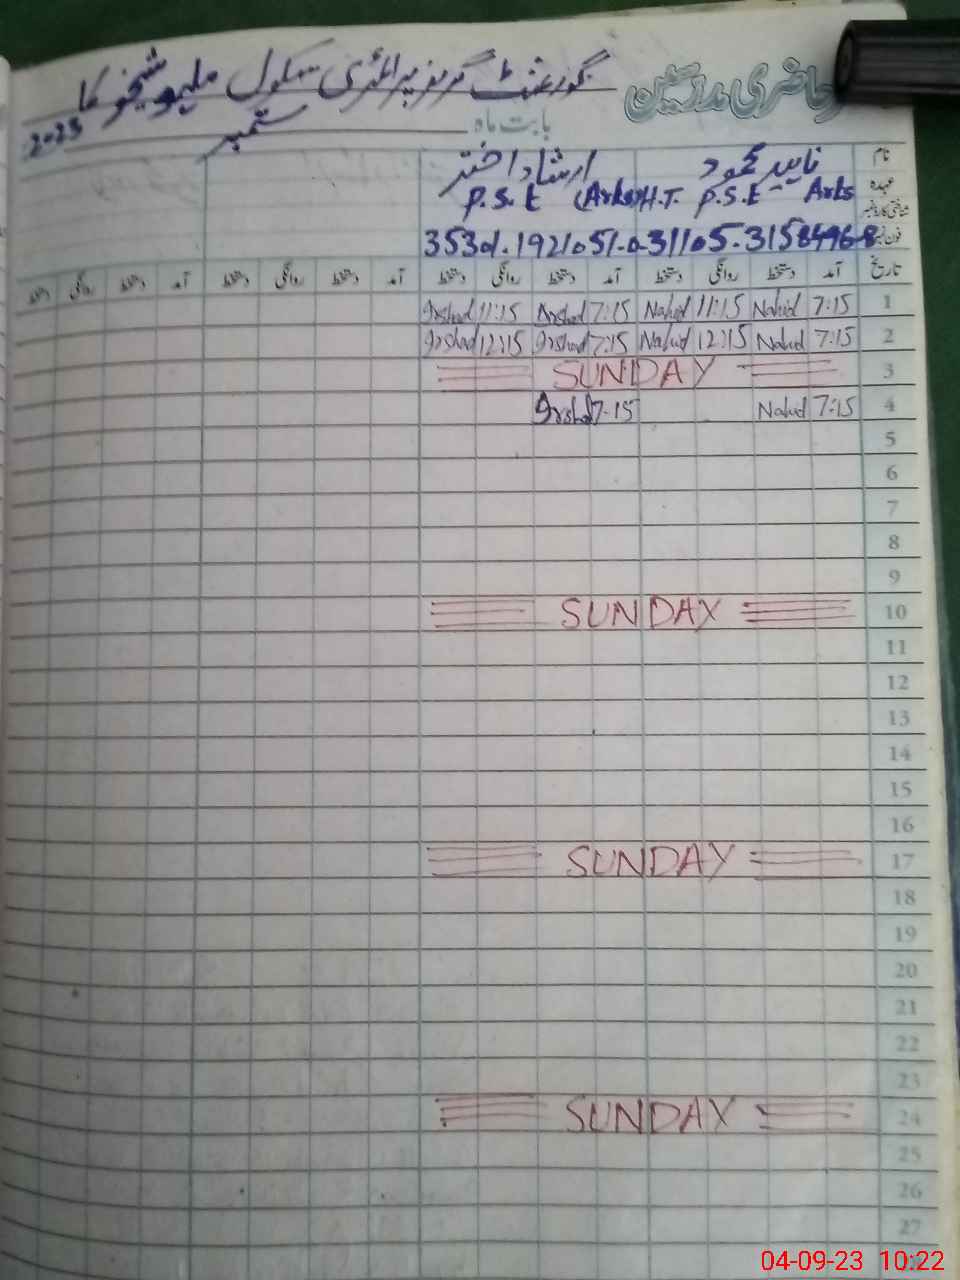 حاضری مدرسین
گورنمنٹ گرلز پرائمری سکول
بابت ماہ ستمبر 2023
نام ناہید محمود ارشاد اختر
عہدہ H.T. P.S.E Arts P.S.E (Arts)
تاریخ آمد دستخط روانگی دستخط آمد دستخط روانگی دستخط آمد دستخط روانگی دستخط آمد دستخط روانگی دستخط
1 7:15 Nahid 11:15 Nahid 7:15 Arshad 11:15 Irshad
2 7:15 Nahid 12:15 Nahid 7:15 Irshad 12:15 Irshad
3 SUNDAY
4 7:15 Nahid 7-15 Irshad
5
6
7
8
9
10 SUNDAY
11
12
13
14
15
16
17 SUNDAY
18
19
20
21
22
23
24 SUNDAY
25
26
27
04-09-23 10:22